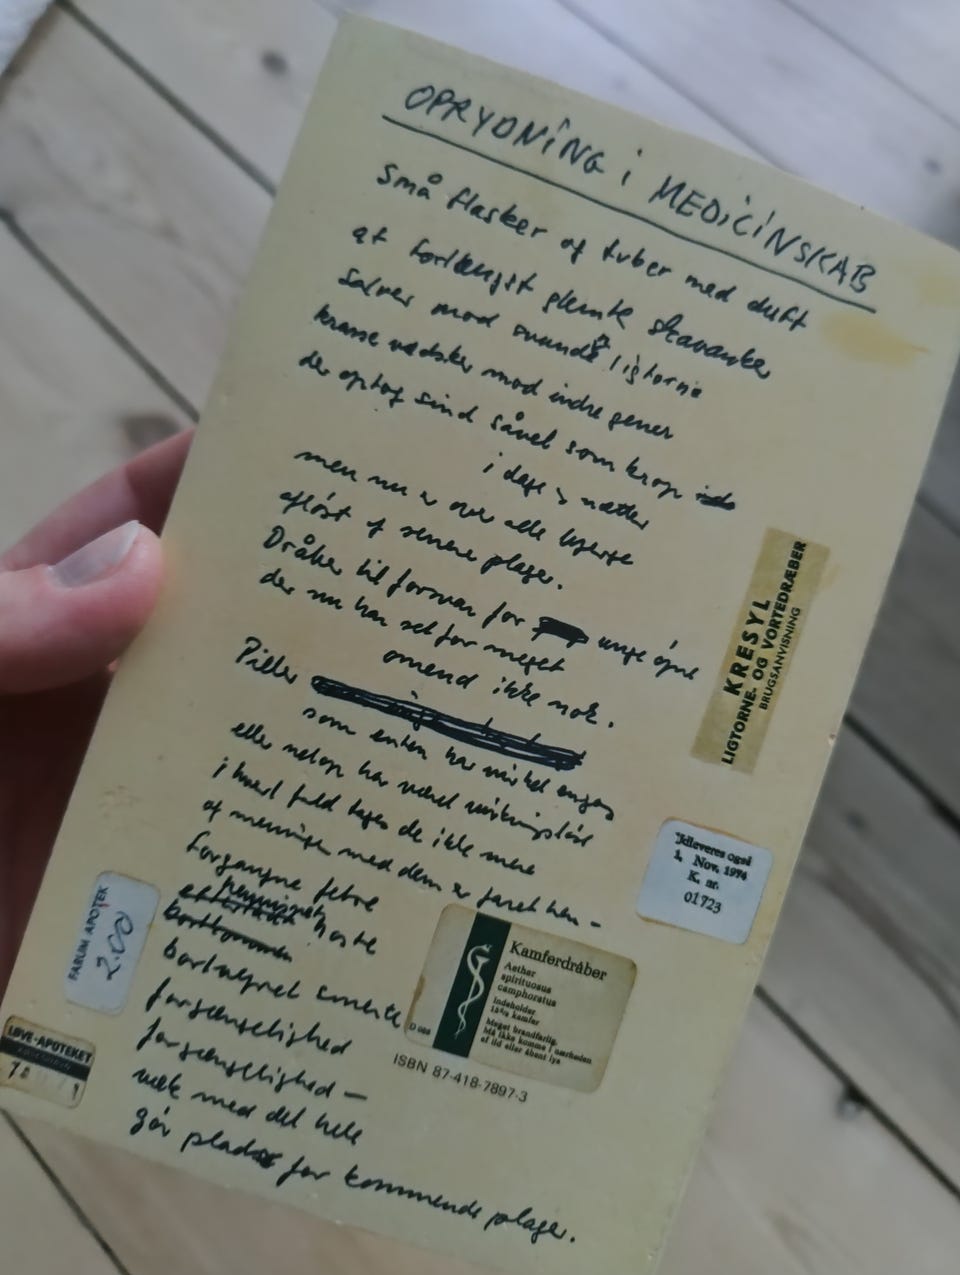 OPRYDNING i MEDICINSKAB
Små flasker og tuber med duft
af forlængst glemte skavanker
Salver mod svundne ligtorne
krasse vædsker mod indre gener
der optog sind såvel som krop
i dage & nætter
men nu er over alle bjerge
afløst af senere plager.
Dråber til forsvar for unge øjne
der nu har set for meget
omend ikke nok.
Piller
som enten har virket engang
eller netop har været virkningsløse
i hvert fald tages de ikke mere
og meningen med dem er faret hen -
Forgangne febre
hoste
bortvejret smerte
forgængelighed
forgængelighed —
væk med det hele
gør plads for kommende plager.
KRESYL
LIGTORNE- OG VORTEDRÆBER
BRUGSANVISNING
Udleveres også
1. Nov. 1974
K. nr.
01723
FARUM APOTEK
2.00
Kamferdråber
Aether
spirituosus
camphoratus
Indeholder
kamfer
Meget brandfarlig.
Må ikke komme i nærheden
af ild eller åbent lys
D 088
ISBN 87-418-7897-3
LØVE-APOTEKET